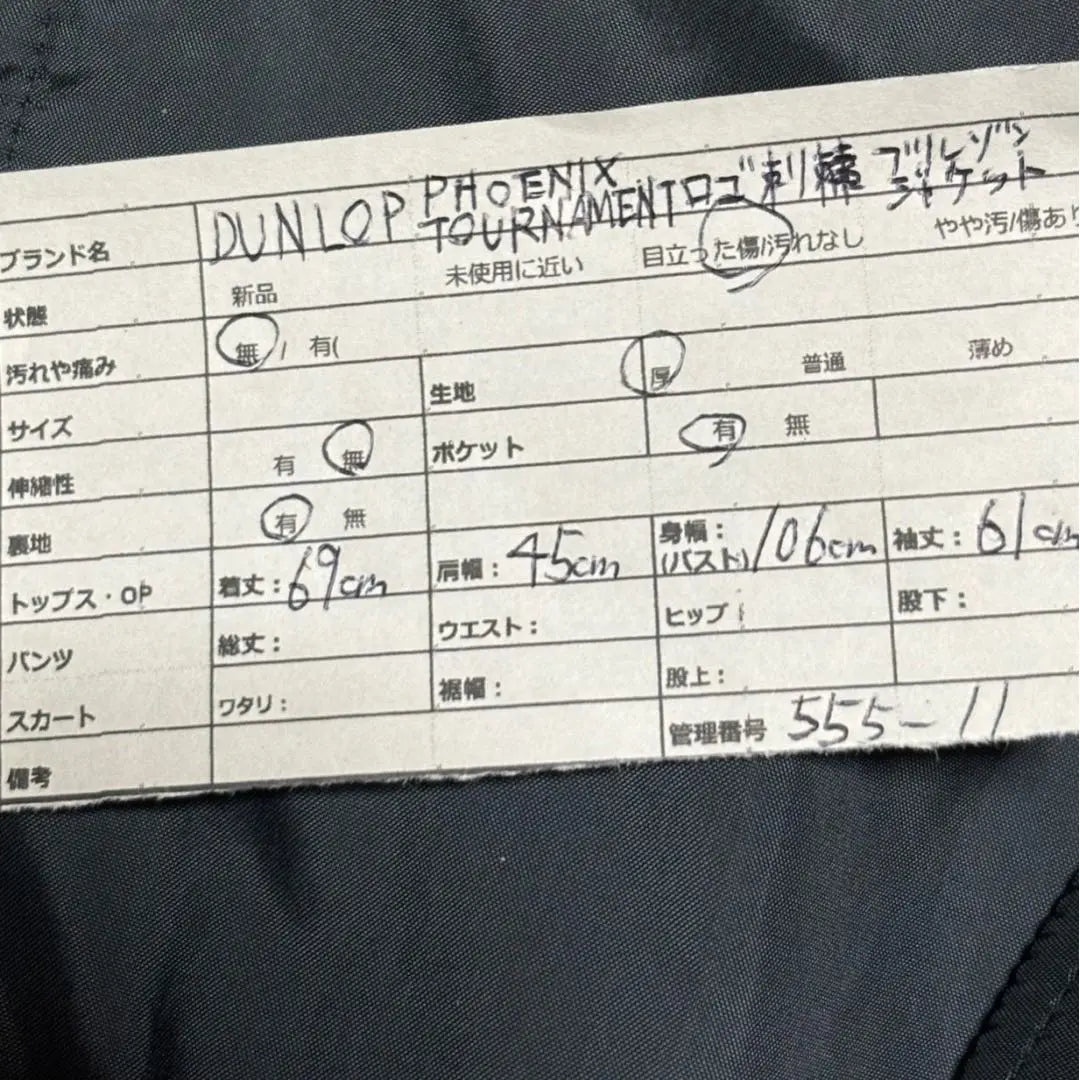 ブランド名 DUNLOP PHOENIX TOURNAMENTロゴ刺繍 ブリレゾン ジャケット
状態 新品 未使用に近い 目立った傷/汚れなし やや汚/傷あり
汚れや痛み 無 / 有(
サイズ 生地 厚 普通 薄め
伸縮性 有 無 ポケット 有 無
裏地 有 無
トップス・OP 着丈：69cm 肩幅：45cm 身幅：(バスト)106cm 袖丈：61cm
パンツ 総丈： ウエスト： ヒップ： 股下：
スカート ワタリ： 裾幅： 股上：
備考 管理番号 555-11